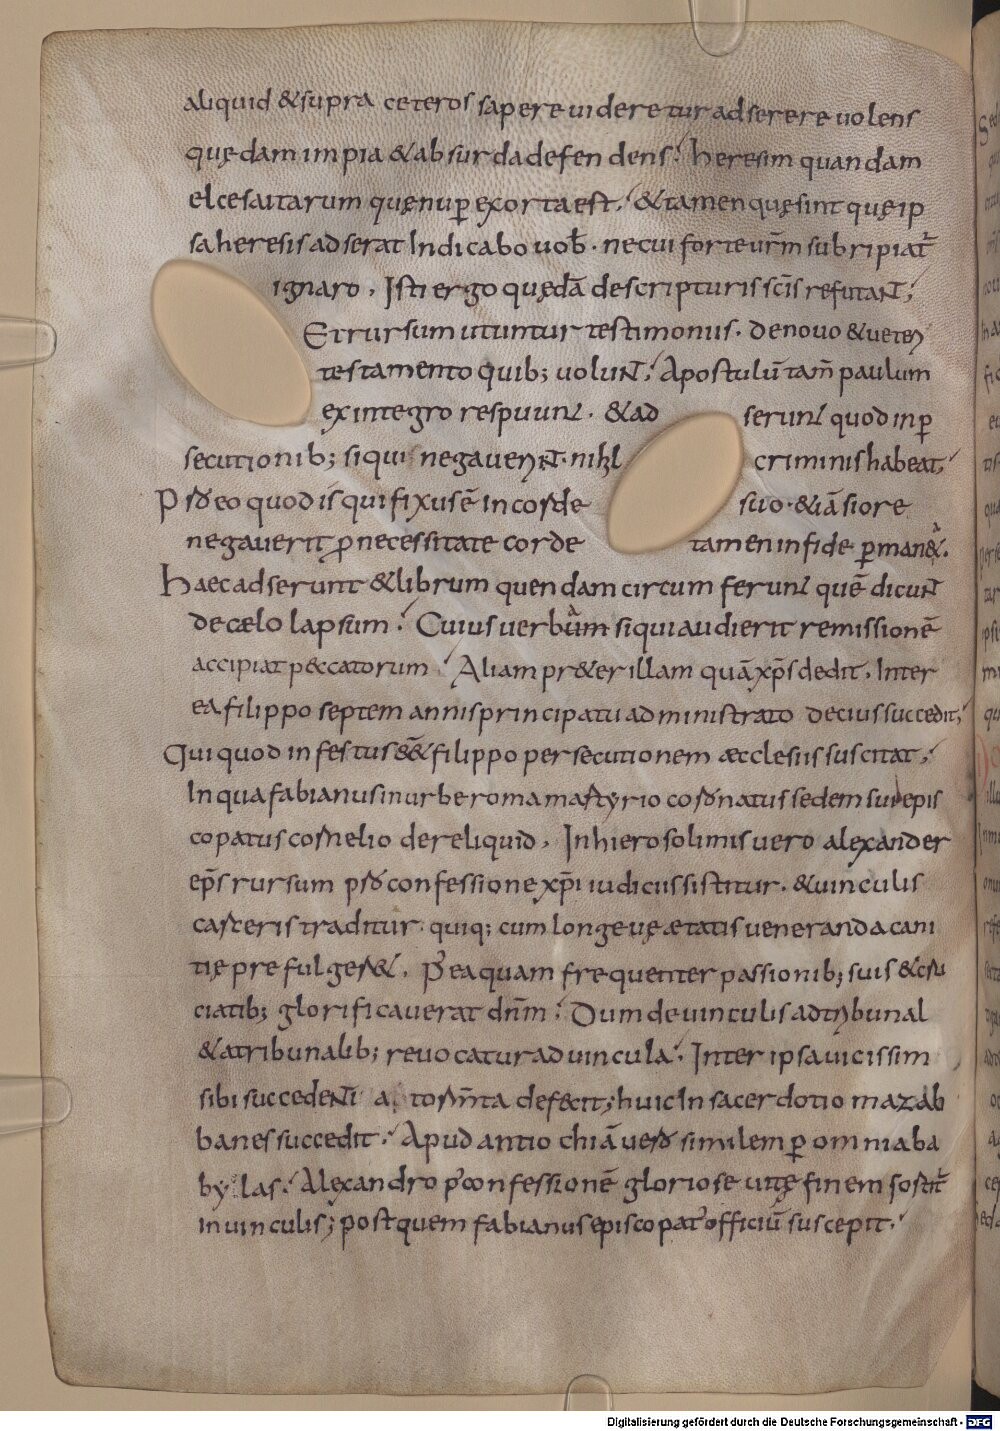 aliquid & supra ceteros sapere uideretur adserere uolens
quędam impia & absurda defendens; heresim quandam
elcesaitarum quę nup̱ exorta est; & tamen quę sint quę ip
sa heresis adserat Indicabo uob̄ · ne cui forte ur̄m subripiat᷑
ignaro, Isti ergo quędā de scripturis sc̄is refutant;
Et rursum utuntur testimoniis · de nouo & ueteri
testamento quib; uolunt; Apostulū tam̄ paulum
ex integro respuunt · & ad serunt quod in p̱
secutionib; si qui negauerint · nihil criminis habeat,
P sd eo quod is qui fixus ē in corde suo · & iā si ore
negauerit p̱ necessitate corde tamen in fide p̱man&᷑.
Haec adserunt & librum quendam circumferunt quē dicunt
de cælo lapsum; Cuius uerbum si qui audierit remissionē
accipiat peccatorum; Aliam pr&er illam quā xp̄s dedit, Inter
ea filippo septem annis principatu administrato decius succedit;
Qui quod infestus ēē & filippo persecutionem æcclesiis suscitat;
In qua fabianus in urbe roma martyrio coronatus sedem sui epis
copatus cornelio dereliquid, In hierosolimis uero alexander
ep̄s rursum p sd confessione xp̄i iudiciis sistitur · & uinculis
carceris traditur · quiq; cum longeuę ætatis ueneranda cani
tię prefulger&, P᷒ ea quam frequenter passionib; suis & cru
ciatib; glorificauerat dn̄m; Dum de uinculis ad tribunal
& a tribunalib; reuocatur ad uincula; Inter ipsa uicissim
sibi succedenti a tormenta defecit; huic In sacerdotio mazab
banes succedit; Apud antiochiā uero similem p̱ omnia ba
bylas; Alexandro p᷒ confessionē gloriose uitę finem sortit᷑
in uinculis; post quem fabianus episcopat᷒ officiū suscepit;
Digitalisierung gefördert durch die Deutsche Forschungsgemeinschaft - DFG